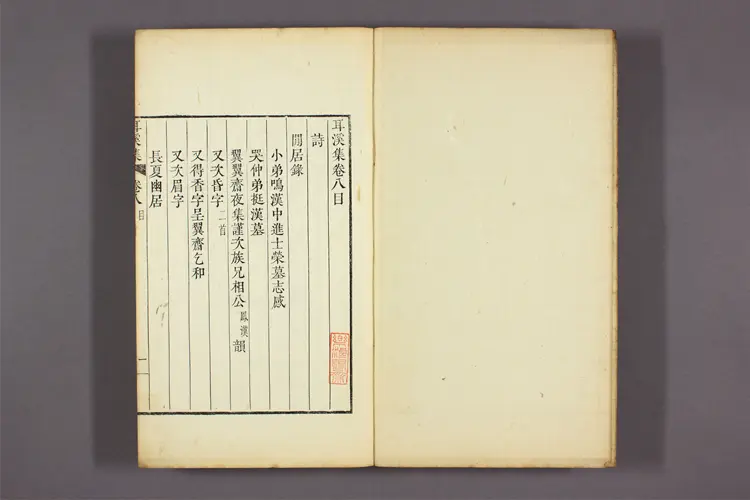 耳溪集卷八目
詩
閒居錄
小弟鳴漢中進士榮墓志感
哭仲弟挺漢墓
翼翼齋夜集謹次族兄相公鳳漢韻
又次昏字二首
又得香字呈翼齋乞和
又次眉字
長夏幽居
耳溪集 卷八目 一